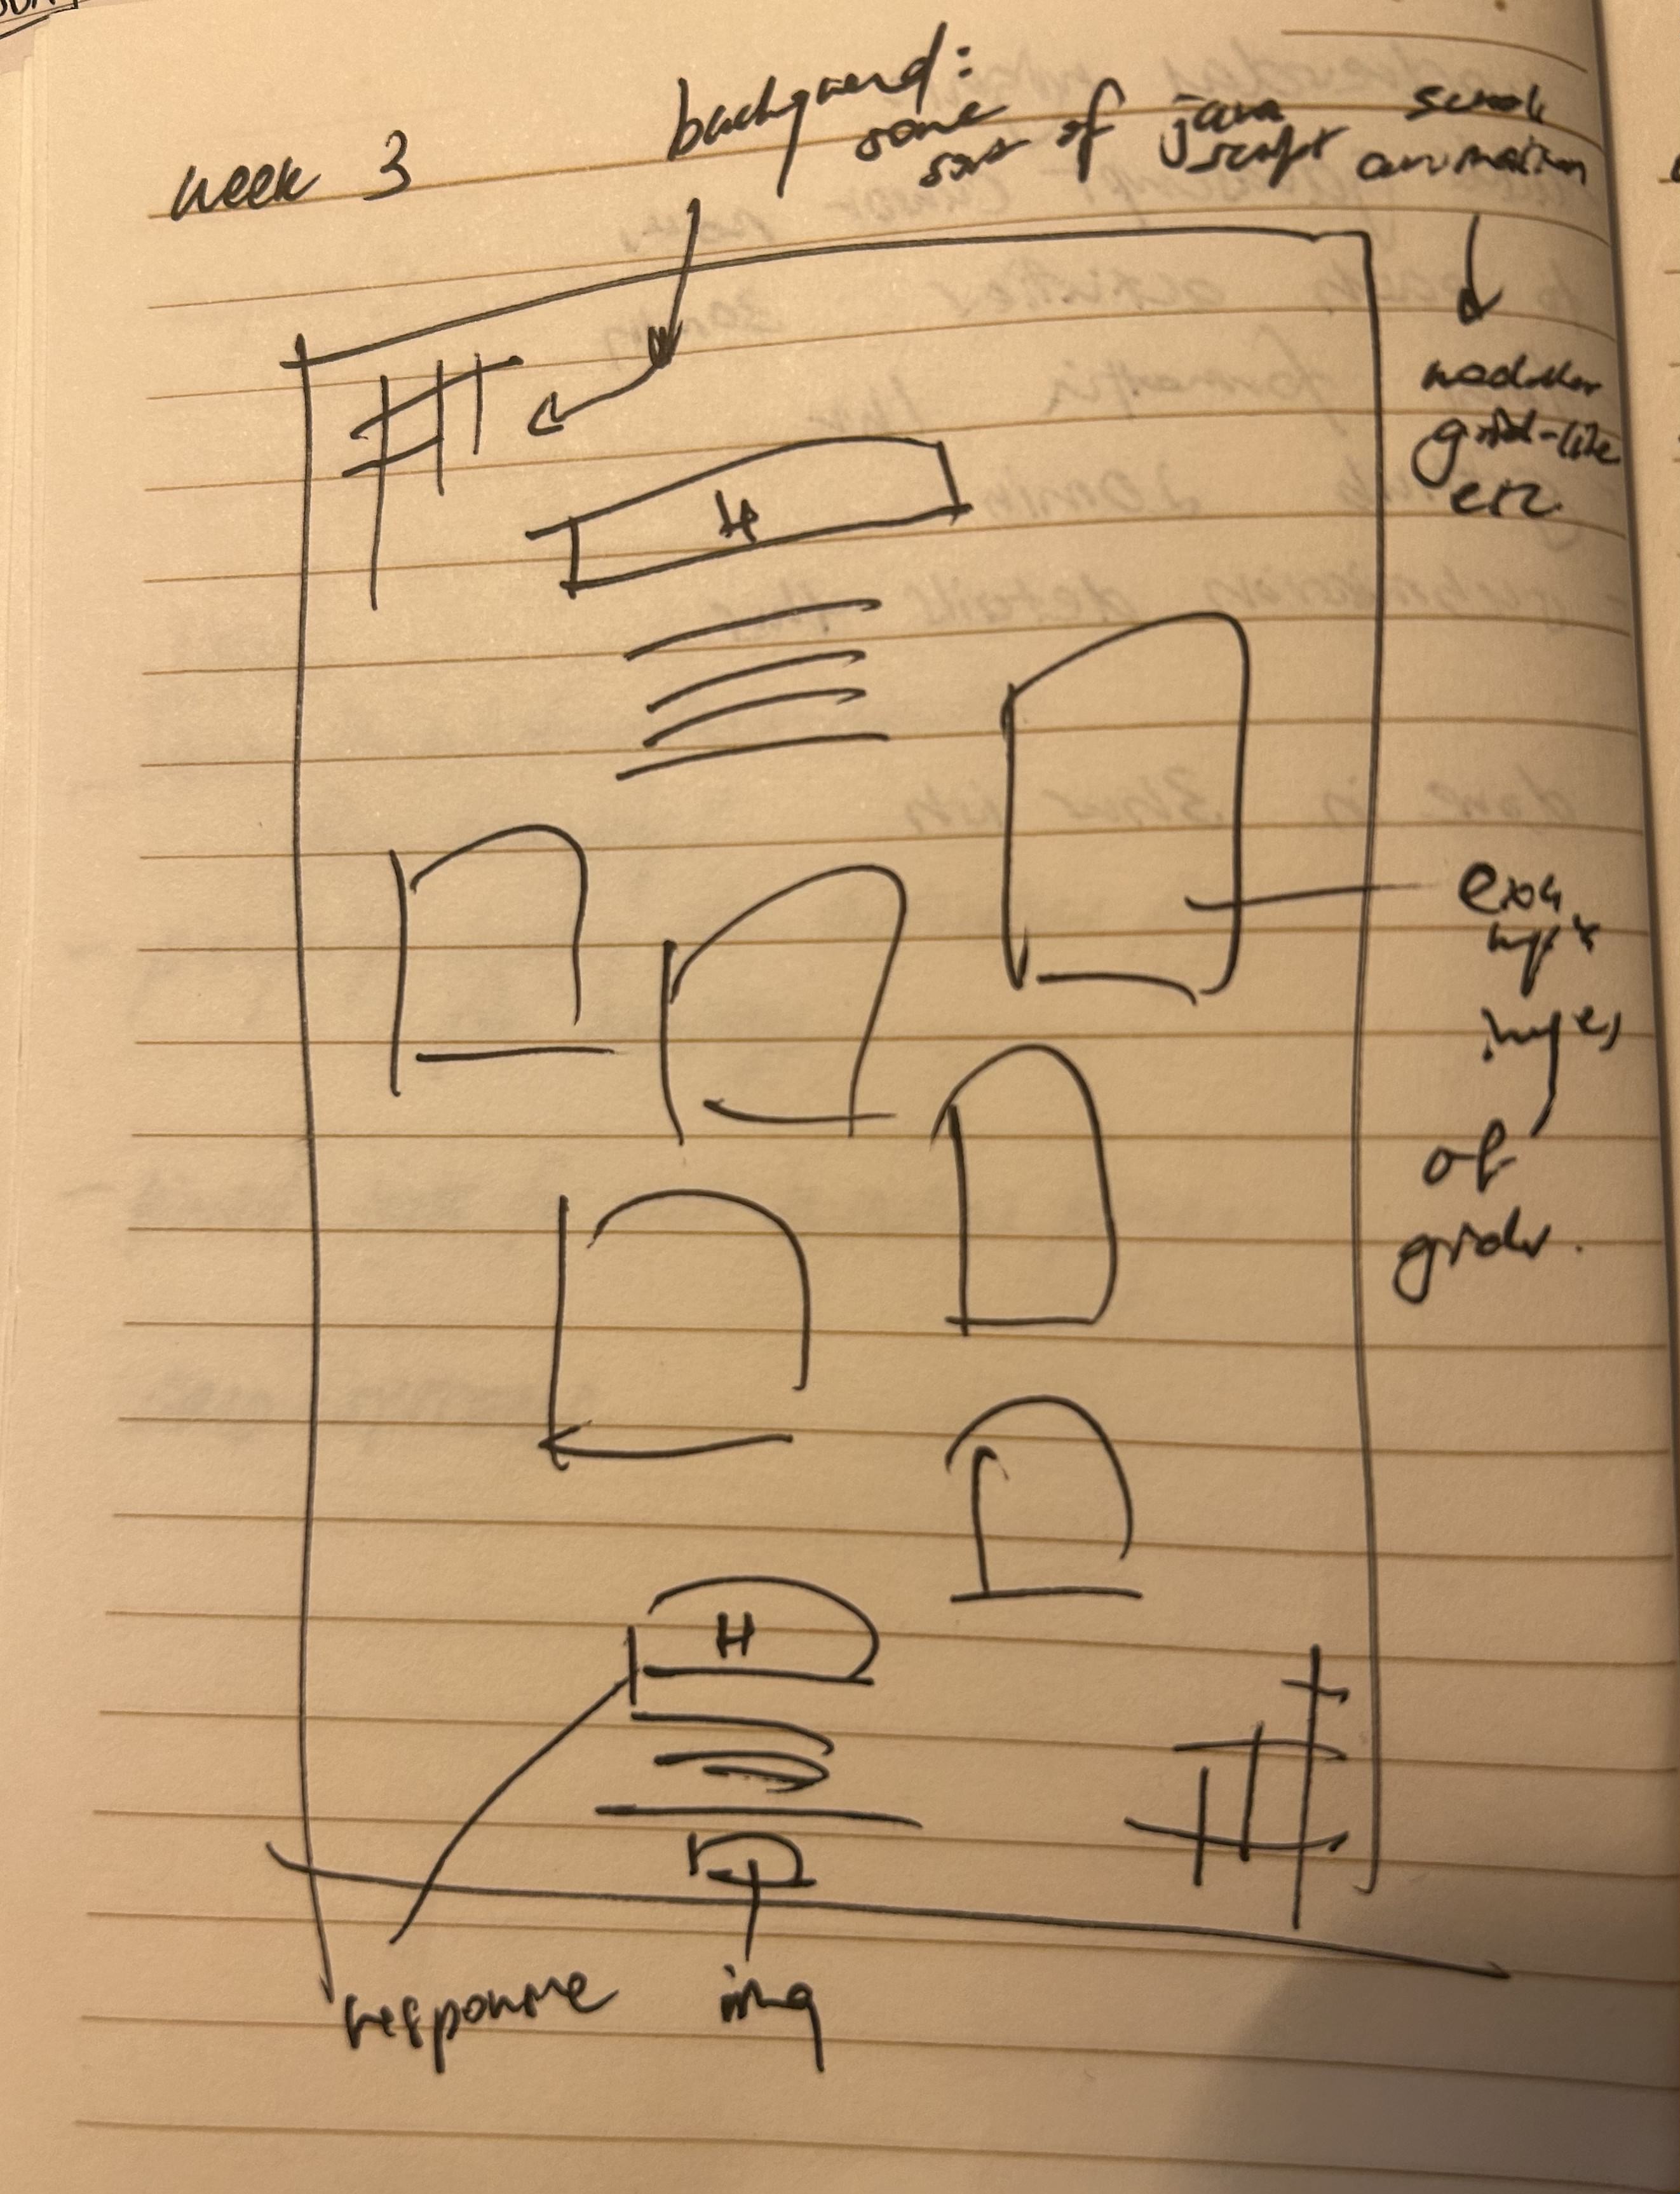 week 3
background:
some
sort of java scroll
script animation
modular
grid-like
etc
H
images
of
grids.
H
response
img